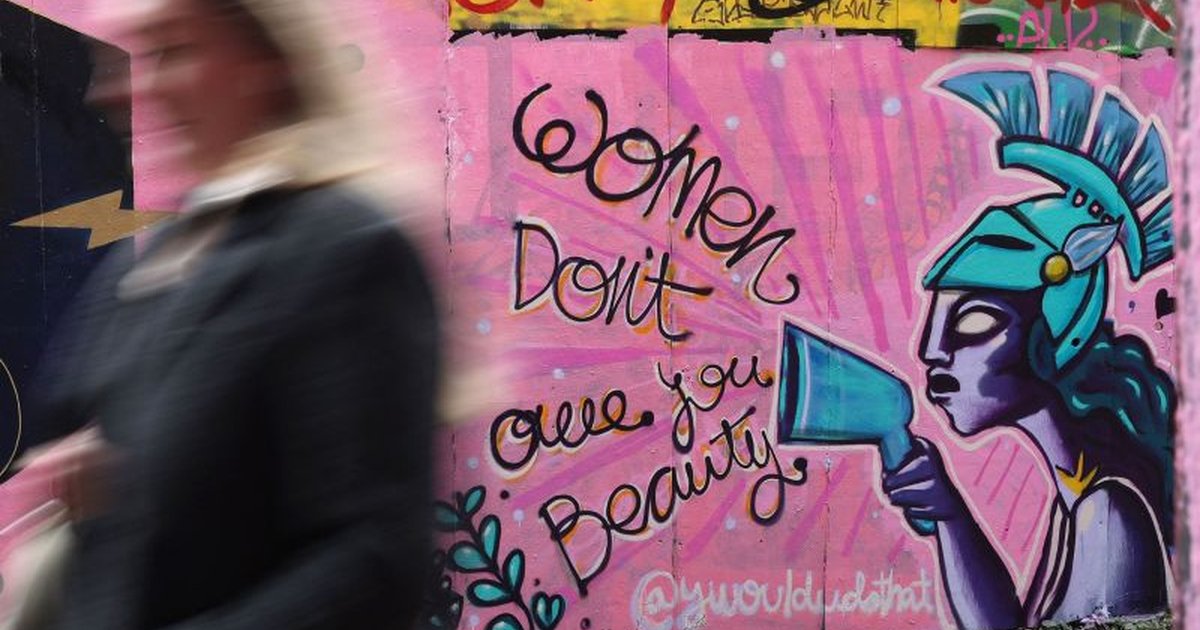 Women
Don't
owe you
Beauty.
@ywouldudothat